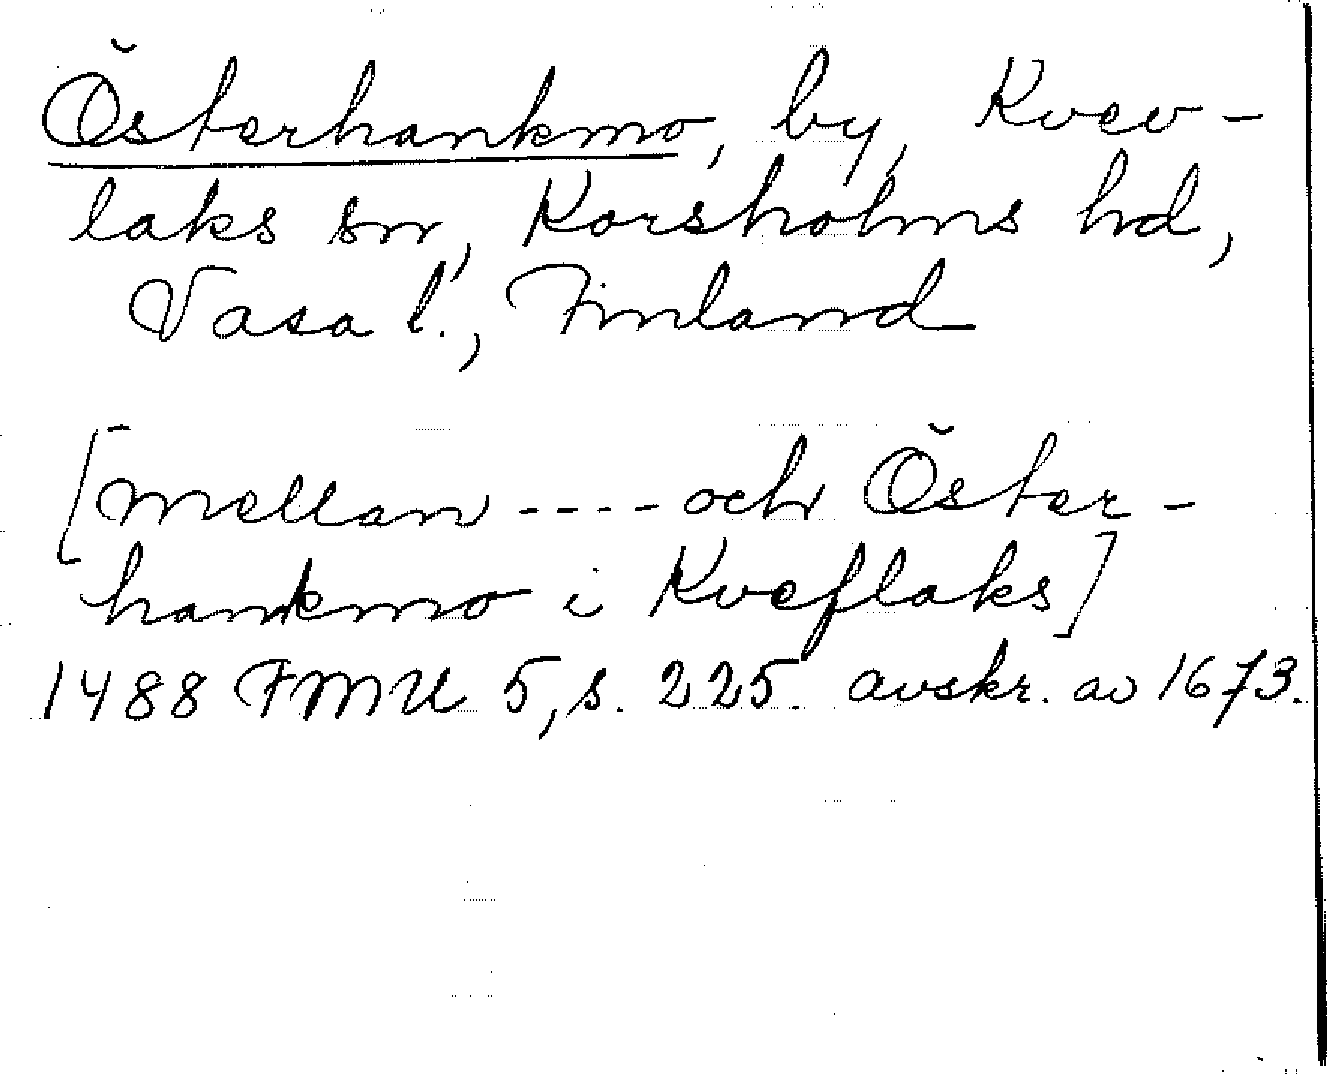 Österhankmo, by, Kvev-
laks sn, Korsholms hd,
Vasa l., Finland
[mellan ---- och Öster-
hankmo i Kveflaks]
1488 FMU 5, s. 225. avskr. av 1673.